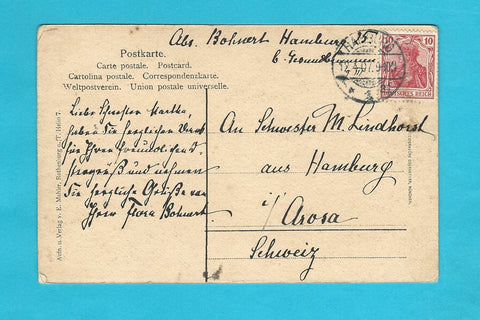 Abs. Bohnert Hamburg
Postkarte.
Carte postale. Postcard.
Cartolina postale. Correspondenzkarte.
Weltpostverein. Union postale universelle.
10
DEUTSCHES REICH
HAMBURG
12.4.07.9-10
Liebe Schwester Martha,
haben Sie herzlichen Dank
für Ihren freundlichen
und nehmen
Sie herzliche Grüße von
Ihrer Flora Bohnert
An Schwester M. Lindhorst
aus Hamburg
i/
Arosa
Schweiz
Aufn. u. Verlag v. E. Mahler, Rothenburg o. T.